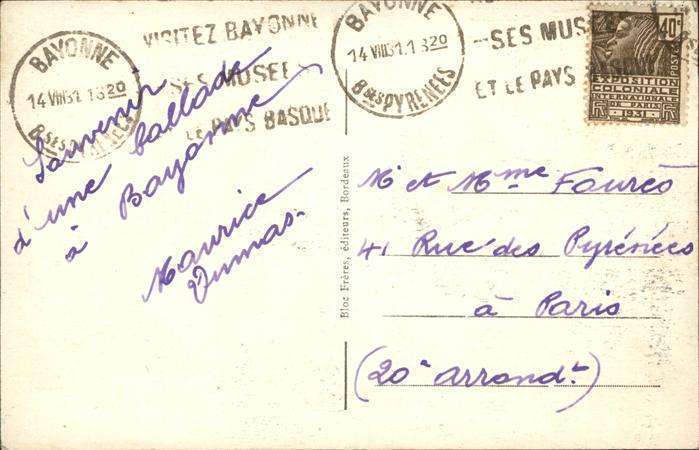 BAYONNE
14 VIII 31. 1820
BSES PYRENEES
VISITEZ BAYONNE
SES MUSEES
LE PAYS BASQUE
BAYONNE
14 VIII 31. 1820
BSES PYRENEES
SES MUS
ET LE PAYS
40c
POSTES
EXPOSITION
COLONIALE
INTERNATIONALE
DE PARIS
1931
Souvenir
d'une ballade
à Bayonne
Maurice
Dumas.
Bloc Frères, éditeurs, Bordeaux
Mr et Mme Fourès
41 Rue des Pyrénées
à Paris
(20e arrondt.)